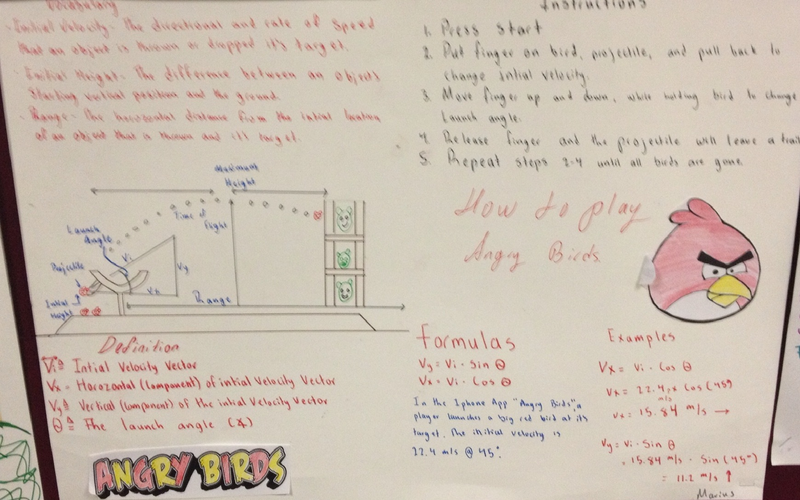 Vocabulary
- Initial Velocity - The directional and rate of speed
that an object is thrown or dropped it's target.
- Initial Height - The difference between an objects
starting vertical position and the ground.
- Range - The horizontal distance from the initial location
of an object that is thrown and it's target.
Instructions
1. Press start
2. Put finger on bird, projectile, and pull back to
change initial velocity.
3. Move finger up and down, while holding bird to change
Launch angle.
4. Release finger and the projectile will leave a trail
5. Repeat steps 2-4 until all birds are gone.
Maximum
Height
Time of
flight
Launch
Angle
Vi
Vy
Projectile
Vx
Initial
Height
Range
How to play
Angry Birds
Definition
Vi = Intial Velocity Vector
Vx = Horozontal (component) of intial Velocity Vector
Vy = Vertical (component) of the intial Velocity Vector
θ = The launch angle (∡)
ANGRY BIRDS
formulas
Vy = Vi · Sin θ
Vx = Vi · Cos θ
In the Iphone App "Angry Birds", a
player launches a big red bird at its
target. The initial velocity is
22.4 m/s @ 45°.
Examples
Vx = Vi · Cos θ
Vx = 22.4 m/s Cos (45°)
Vx = 15.84 m/s →
Vy = Vi · Sin θ
= 15.84 m/s · Sin (45°)
= 11.2 m/s ↑
Marius